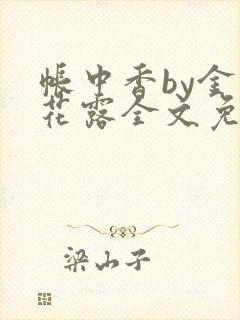 帐中香by金
花露全文免
梁山子